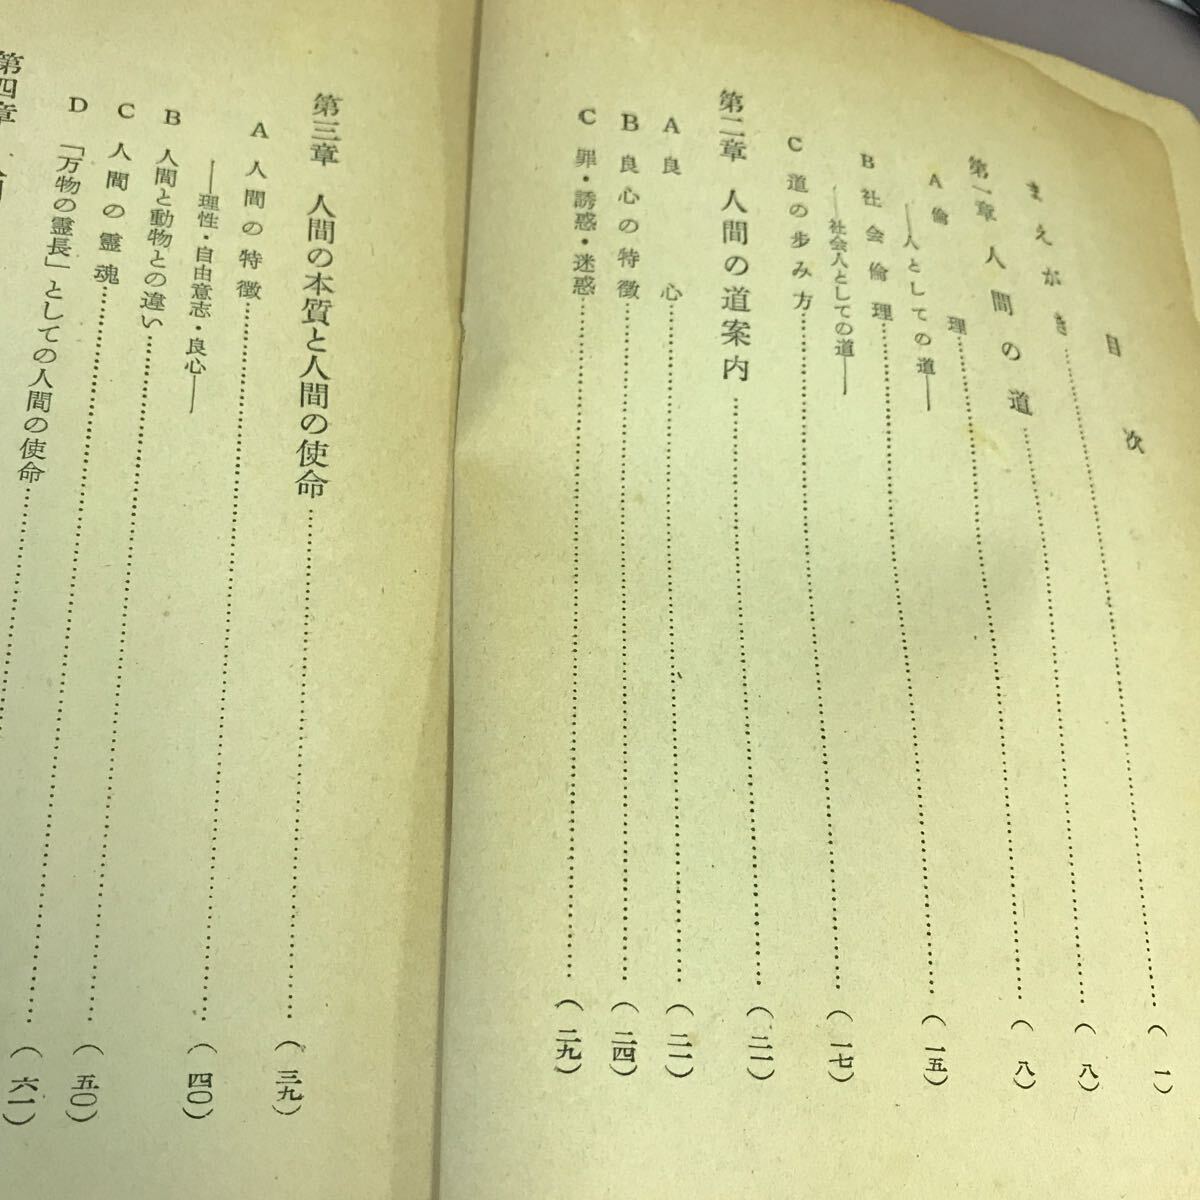 目次
まえがき……………(一)
第一章 人間の道……………(八)
A 倫理……………(八)
――人としての道――
B 社会倫理……………(一五)
――社会人としての道――
C 道の歩み方……………(一七)
第二章 人間の道案内……………(二一)
A 良心……………(二一)
B 良心の特徴……………(二四)
C 罪・誘惑・迷惑……………(二九)
第三章 人間の本質と人間の使命……………(三九)
A 人間の特徴……………(四〇)
――理性・自由意志・良心――
B 人間と動物との違い……………(五〇)
C 人間の霊魂……………(六一)
D 「万物の霊長」としての人間の使命……………
第四章